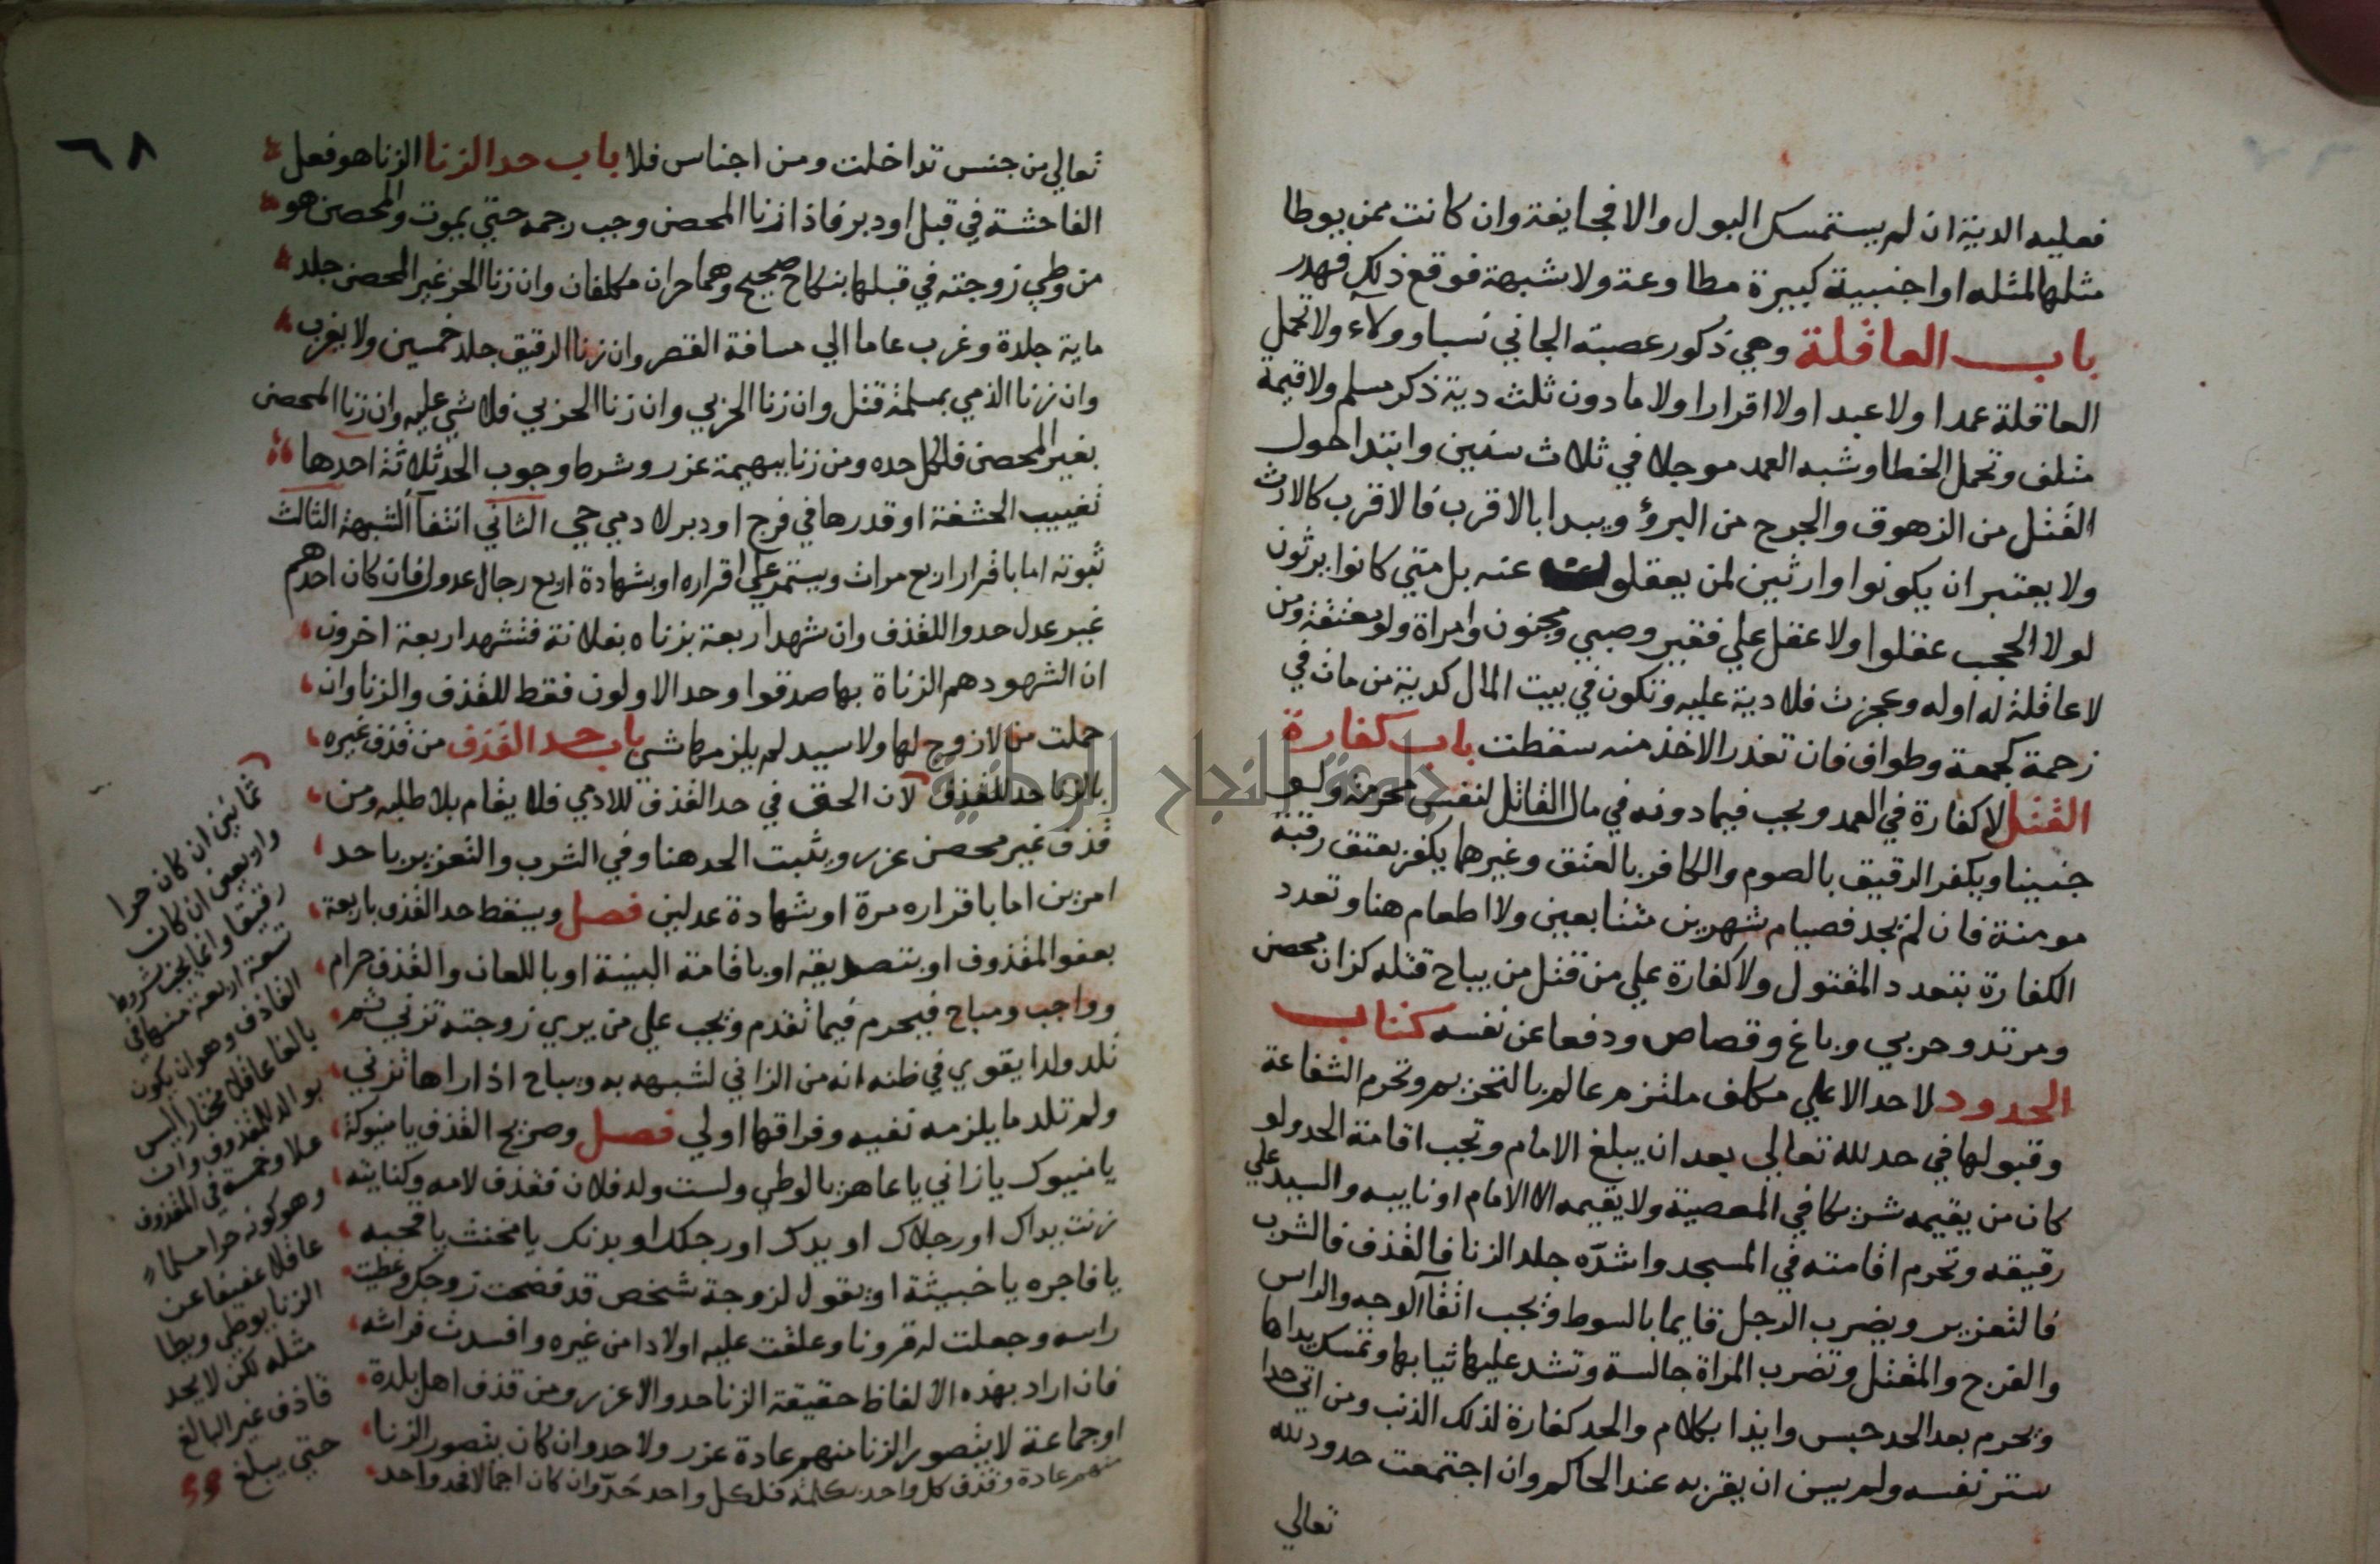 فعليه الدية ان لم يستمسك البول والا فجايفة وان كانت ممن يوطا
مثلها لمثله او اجنبية كبيرة مطاوعة ولا شبهة فوقع ذلك فهدر
باب العاقلة وهي ذكور عصبة الجاني نسبا وولاء ولا تحمل
العاقلة عمدا ولا عبدا ولا اقرارا ولا ما دون ثلث دية ذكر مسلم ولا قيمة
متلف وتحمل الخطا وشبه العمد موجلا في ثلاث سنين وابتدا حول
القتل من الزهوق والجرح من البرؤ ويبدا بالاقرب فالاقرب كالارث
ولا يعتبر ان يكونوا وارثين لمن يعقلوا عنه بل متي كانوا يرثون
لولا الحجب عقلوا ولا عقل علي فقير وصبي ومجنون وامراة ولو معتقة ومن
لا عاقلة له او له وعجزت فلا دية عليه وتكون في بيت المال كدية من مات في
زحمة كجمعة وطواف فان تعذر الاخذ منه سقطت باب كفارة
القتل لا كفارة في العمد وتجب فيما دونه في مال القاتل لنفس محرمة ولو
جنينا ويكفر الرقيق بالصوم والكافر بالعتق وغيرهما يكفر بعتق رقبة
مومنة فان لم يجد فصيام شهرين متتابعين ولا اطعام هنا وتعدد
الكفارة بتعدد المقتول ولا كفارة علي من قتل من يباح قتله كزان محصن
ومرتد وحربي وباغ وقصاص ودفعا عن نفسه كتاب
الحدود لا حد الا علي مكلف ملتزم عالم بالتحريم وتحرم الشفاعة
وقبولها في حد لله تعالي بعد ان يبلغ الامام وتجب اقامة الحد ولو
كان من يقيمه شريكا في المعصية ولا يقيمه الا الامام او نايبه والسيد علي
رقيقه وتحرم اقامته في المسجد واشدّه جلد الزنا فالقذف فالشرب
فالتعزير ويضرب الرجل قايما بالسوط ويجب اتقآ الوجه والراس
والفرج والمقتل وتضرب المراة جالسة وتشد عليها ثيابها وتمسك يداها
ويحرم بعد الحد حبس وايذا بكلام والحد كفارة لذلك الذنب ومن اتي حدا
ستر نفسه ولم يسن ان يقر به عند الحاكم وان اجتمعت حدود لله
تعالي
٦٨
تعالي من جنس تداخلت ومن اجناس فلا باب حد الزنا الزنا هو فعل
الفاحشة في قبل او دبر فاذا زنا المحصن وجب رجمه حتي يموت والمحصن هو
من وطي زوجته في قبلها بنكاح صحيح وهما حران مكلفان وان زنا الحر غير المحصن جلد
ماية جلدة وغرب عاما الي مسافة القصر وان زنا الرقيق جلد خمسين ولا يغرب
وان زنا الذمي بمسلمة قتل وان زنا الحربي وان زنا الحربي فلا شي عليه وان زنا المحصن
بغير المحصن فلكل حده ومن زنا ببهيمة عزر وشرط وجوب الحد ثلاثة احدها
تغييب الحشفة او قدرها في فرج او دبر لادمي حي الثاني انتفآ الشبهة الثالث
ثبوته اما باقرار اربع مرات ويستمر علي اقراره او بشهادة اربع رجال عدول فان كان احدهم
غير عدل حدوا للقذف وان شهد اربعة بزناه بفلانة فتشهد اربعة اخرون
ان الشهود هم الزناة بها صدقوا وحد الاولون فقط للقذف والزنا وان
حملت من لا زوج لها ولا سيد لم يلزمها شي باب حد القذف من قذف غيره
بالزنا حد للقذف لان الحق في حد القذف للادمي فلا يقام بلا طلبه ومن
قذف غير محصن عزر ويثبت الحد هنا وفي الشرب والتعزير باحد
امرين اما باقراره مرة او شهادة عدلين فصل ويسقط حد القذف باربعة
بعفو المقذوف او بتصديقه او باقامة البينة او باللعان والقذف حرام
وواجب ومباح فيحرم فيما تقدم ويجب علي من يري زوجته تزني ثم
تلد ولدا يقوي في ظنه انه من الزاني لشبهه به ويباح اذا راها تزني
ولم تلد ما يلزمه نفيه وفراقها اولي فصل وصريح القذف يا منيوكة
يا منيوك يا زاني يا عاهر يا لوطي ولست ولد فلان فقذف لامه وكنايته
زنت يداك او رجلاك او يدك او رجلك او بدنك يا مخنث يا قحبه
يا فاجره يا خبيثة او يقول لزوجة شخص قد فضحت زوجك وغطيت
راسه وجعلت له قرونا وعلقت عليه اولادا من غيره وافسدت فراشه
فان اراد بهذه الالفاظ حقيقة الزنا حد والا عزر ومن قذف اهل بلدة
او جماعة لا يتصور الزنا منهم عادة عزر ولا حد وان كان يتصور الزنا
منهم عادة وقذف كل واحد بكلمة فلكل واحد حدّ وان كان اجمالا فحد واحد
ثمانين ان كان حرا
واربعين ان كان
رقيقا وانما يجب بشروط
تسعة اربعة منها في
القاذف وهو ان يكون
بالغا عاقلا مختارا ليس
بوالد للمقذوف وان
علا وخمسة في المقذوف
وهو كونه حرا مسلما
عاقلا عفيفا عن
الزنا يوطي ويطا
مثله لكن لا يحد
قاذف غير البالغ
حتي يبلغ
جامعة النجاح الوطنية